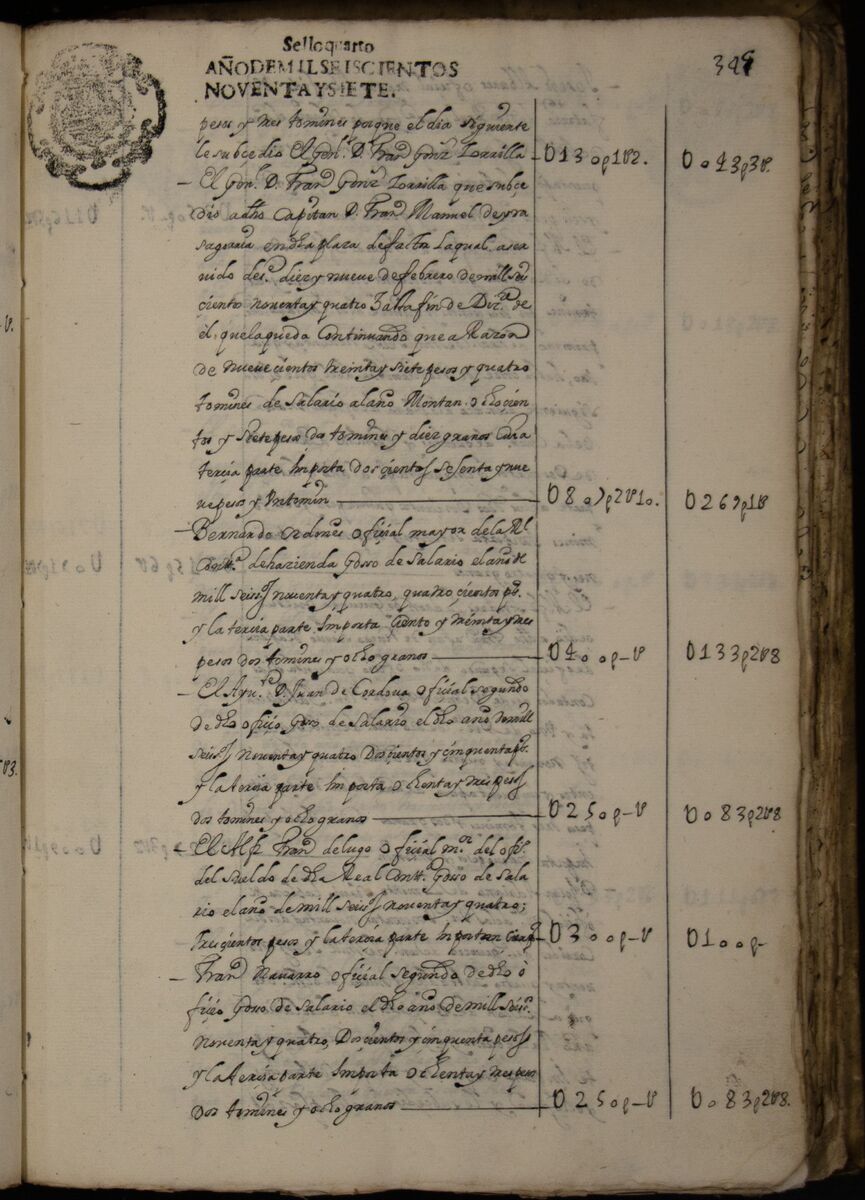 Sello quarto
AÑO DE MIL SEISCIENTOS
NOVENTA Y SIETE.
pesos y tres tomines porque el dia siguiente
le subcedio El Gonl. D. Franco Gonz Zorrilla U130p1U2. Uo43p3U.
– El Gonl. D. Franco Gonz Zorrilla que subçe
dio a dho Capitan D. Franco Manuel de
en dha plaza de falta La qual a ser
uido des.e diez y nueue de febrero de mill seis
cientos nouenta y quatro hasta fin de Diz.e de
el, que la queda Continuando que a Razon
de Nueuecientos treinta y siete pesos y quatro
tomines de Salario al año Montan ochoçien
tos y siete pesos dos tomines y diez granos Cuia
terçia parte Importa doscientos sesenta y nue
ue pesos y Un tomin U807p2U10. U269p1U
– Bernardo Ordones oficial mayor de la Rl
Contt.a de hazienda Gosso de Salario el año de
mill seis.s nouenta y quatro, quatroçientos ps.
y la terçia parte Importa Çiento y treinta y tres
pesos dos tomines y ocho granos U400p–U U133p2U8
– El Ayu.te D. Juan de Cordoua oficial segundo
de dho ofiçio Goso de Salario el dho año de mill
seis.s Nouenta y quatro Dosçientos y çinquenta ps.
y la terçia parte Importa ochenta y tres pesos
dos tomines y ocho granos U250p–U Uo83p2U8
– El Alfz Franco de lugo oficial m.or del ofi.o
del sueldo de dha Real Contt.a Gosso de Sala
rio el año de mill seis.s nouenta y quatro;
tresçientos pesos y la terçia parte Importan U300p–U U100p–
– Franco Nauarro oficial segundo de dho o
fiçio Gosso de Salario el dho año de mill seis.s
Nouenta y quatro, Dosçientos y çinquenta pesos
y la terçia parte Importa ochenta y tres pesos
Dos tomines y ocho granos U250p–U Uo83p2U8.